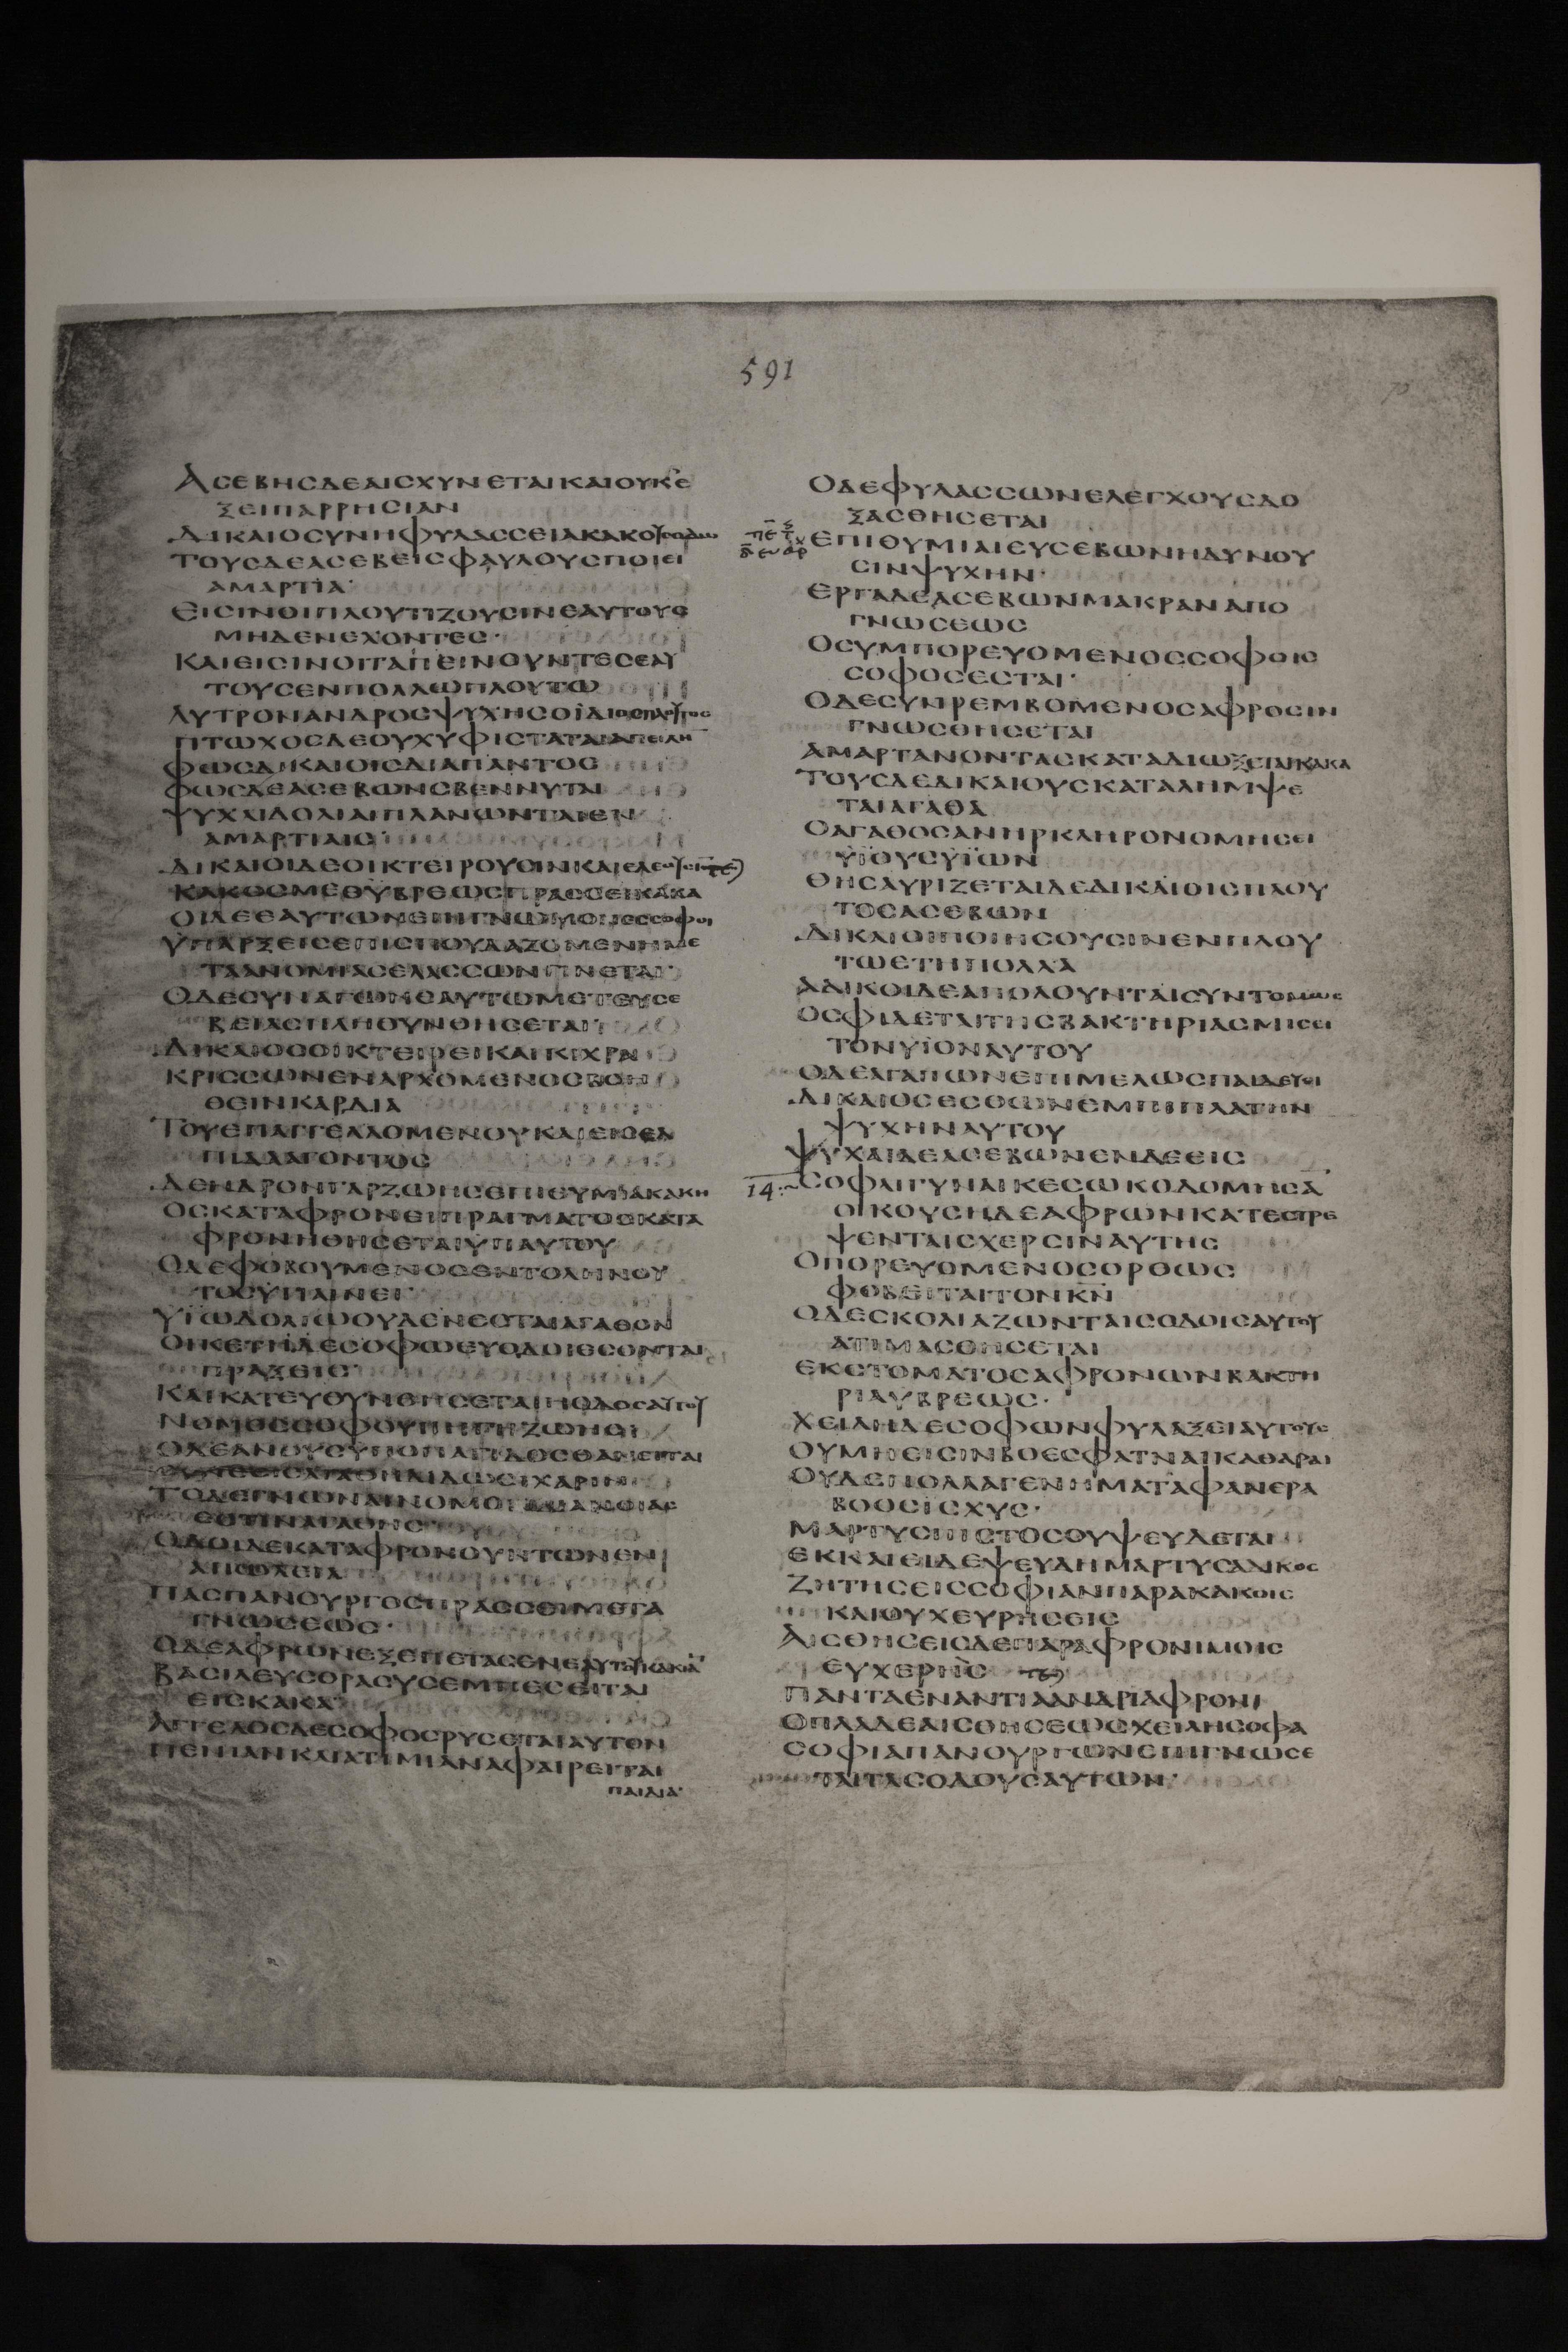 591
ΑϹΕΒΗϹΔΕΑΙϹΧΥΝΕΤΑΙΚΑΙΟΥΚΕ
ΞΕΙΠΑΡΡΗϹΙΑΝ
ΔΙΚΑΙΟϹΥΝΗΦΥΛΑϹϹΕΙΑΚΑΚΟΥϹ
ΤΟΥϹΔΕΑϹΕΒΕΙϹΦΑΥΛΟΥϹΠΟΙΕΙ
ΑΜΑΡΤΙΑ·
ΕΙϹΙΝΟΙΠΛΟΥΤΙΖΟΥϹΙΝΕΑΥΤΟΥϹ
ΜΗΔΕΝΕΧΟΝΤΕϹ·
ΚΑΙΕΙϹΙΝΟΙΤΑΠΕΙΝΟΥΝΤΕϹΕΑΥ
ΤΟΥϹΕΝΠΟΛΛΩΠΛΟΥΤΩ
ΛΥΤΡΟΝΑΝΔΡΟϹΨΥΧΗϹΟΙΔΙΟϹΠΛΟΥΤΟϹ
ΠΤΩΧΟϹΔΕΟΥΧΥΦΙϹΤΑΤΑΙΑΠΕΙΛΗ
ΦΩϹΔΙΚΑΙΟΙϹΔΙΑΠΑΝΤΟϹ
ΦΩϹΔΕΑϹΕΒΩΝϹΒΕΝΝΥΤΑΙ
ΨΥΧΑΙΔΟΛΙΑΙΠΛΑΝΩΝΤΑΙΕΝ
ΑΜΑΡΤΙΑΙϹ
ΔΙΚΑΙΟΙΔΕΟΙΚΤΕΙΡΟΥϹΙΝΚΑΙΕΛΕΩϹΙ
ΚΑΚΟϹΜΕΘΥΒΡΕΩϹΠΡΑϹϹΕΙΚΑΚΑ
ΟΙΔΕΕΑΥΤΩΝΕΠΙΓΝΩΜΟΝΕϹϹΟΦΟΙ
ΥΠΑΡΞΕΙϹΕΠΙϹΠΟΥΔΑΖΟΜΕΝΗΜΕ
ΤΑΑΝΟΜΙΑϹΕΛΑϹϹΩΝΓΙΝΕΤΑΙ·
ΟΔΕϹΥΝΑΓΩΝΕΑΥΤΩΜΕΤΕΥϹΕ
ΒΕΙΑϹΠΛΗΘΥΝΘΗϹΕΤΑΙ
ΔΙΚΑΙΟϹΟΙΚΤΕΙΡΕΙΚΑΙΚΙΧΡΑ
ΚΡΙϹϹΩΝΕΝΑΡΧΟΜΕΝΟϹΒΟΗ
ΘΕΙΝΚΑΡΔΙΑ
ΤΟΥΕΠΑΓΓΕΛΛΟΜΕΝΟΥΚΑΙΕΙϹΕΛ
ΠΙΔΑΑΓΟΝΤΟϹ
ΔΕΝΔΡΟΝΓΑΡΖΩΗϹΕΠΙΘΥΜΙΑΚΑΚΗ
ΟϹΚΑΤΑΦΡΟΝΕΙΠΡΑΓΜΑΤΟϹΚΑΤΑ
ΦΡΟΝΗΘΗϹΕΤΑΙΥΠΑΥΤΟΥ
ΟΔΕΦΟΒΟΥΜΕΝΟϹΕΝΤΟΛΗΝΟΥ
ΤΟϹΥΓΙΑΙΝΕΙ·
ΥΙΩΔΟΛΙΩΟΥΔΕΝΕϹΤΑΙΑΓΑΘΟΝ
ΟΙΚΕΤΗΔΕϹΟΦΩΕΥΟΔΟΙΕϹΟΝΤΑΙ
ΠΡΑΞΕΙϹ
ΚΑΙΚΑΤΕΥΘΥΝΘΗϹΕΤΑΙΗΟΔΟϹΑΥΤΟΥ
ΝΟΜΟϹϹΟΦΟΥΠΗΓΗΖΩΗϹ
ΟΔΕΑΝΟΥϹΥΠΟΠΑΓΙΔΟϹΘΑΝΕΙΤΑΙ
ΤΟΔΕΓΝΩΝΑΙΝΟΜΟΝΔΙΑΝΟΙΑϹ
ΕϹΤΙΝΑΓΑΘΗϹ
ΟΔΟΙΔΕΚΑΤΑΦΡΟΝΟΥΝΤΩΝΕΝ
ΑΠΩΛΕΙΑ
ΠΑϹΠΑΝΟΥΡΓΟϹΠΡΑϹϹΕΙΜΕΤΑ
ΓΝΩϹΕΩϹ·
ΟΔΕΑΦΡΩΝΕΞΕΠΕΤΑϹΕΝΕΑΥΤΟΥΚΑΚΙΑ
ΒΑϹΙΛΕΥϹΘΡΑϹΥϹΕΜΠΕϹΕΙΤΑΙ
ΕΙϹΚΑΚΑ
ΑΓΓΕΛΟϹΔΕϹΟΦΟϹΡΥϹΕΤΑΙΑΥΤΟΝ
ΠΕΝΙΑΝΚΑΙΑΤΙΜΙΑΝΑΦΑΙΡΕΙΤΑΙ
ΠΑΙΔΙΑ·
ΟΔΕΦΥΛΑϹϹΩΝΕΛΕΓΧΟΥϹΔΟ
ΞΑϹΘΗϹΕΤΑΙ
ΕΠΙΘΥΜΙΑΙΕΥϹΕΒΩΝΗΔΥΝΟΥ
ϹΙΝΨΥΧΗΝ·
ΕΡΓΑΔΕΑϹΕΒΩΝΜΑΚΡΑΝΑΠΟ
ΓΝΩϹΕΩϹ
ΟϹΥΜΠΟΡΕΥΟΜΕΝΟϹϹΟΦΟΙϹ
ϹΟΦΟϹΕϹΤΑΙ·
ΟΔΕϹΥΝΡΕΜΒΟΜΕΝΟϹΑΦΡΟϹΙΝ
ΓΝΩϹΘΗϹΕΤΑΙ
ΑΜΑΡΤΑΝΟΝΤΑϹΚΑΤΑΔΙΩΞΕΤΑΙΚΑΚΑ
ΤΟΥϹΔΕΔΙΚΑΙΟΥϹΚΑΤΑΛΗΜΨΕ
ΤΑΙΑΓΑΘΑ
ΟΑΓΑΘΟϹΑΝΗΡΚΛΗΡΟΝΟΜΗϹΕΙ
ΥΪΟΥϹΥΪΩΝ
ΘΗϹΑΥΡΙΖΕΤΑΙΔΕΔΙΚΑΙΟΙϹΠΛΟΥ
ΤΟϹΑϹΕΒΩΝ
ΔΙΚΑΙΟΙΠΟΙΗϹΟΥϹΙΝΕΝΠΛΟΥ
ΤΩΕΤΗΠΟΛΛΑ
ΑΔΙΚΟΙΔΕΑΠΟΛΟΥΝΤΑΙϹΥΝΤΟΜΩϹ
ΟϹΦΙΔΕΤΑΙΤΗϹΒΑΚΤΗΡΙΑϹΜΙϹΕΙ
ΤΟΝΥΪΟΝΑΥΤΟΥ
ΟΔΕΑΓΑΠΩΝΕΠΙΜΕΛΩϹΠΑΙΔΕΥΕΙ
ΔΙΚΑΙΟϹΕϹΘΩΝΕΜΠΙΠΛΑΤΗΝ
ΨΥΧΗΝΑΥΤΟΥ
ΨΥΧΑΙΔΕΑϹΕΒΩΝΕΝΔΕΕΙϹ
14:~ ϹΟΦΑΙΓΥΝΑΙΚΕϹΩΚΟΔΟΜΗϹΑ
ΟΙΚΟΥϹΗΔΕΑΦΡΩΝΚΑΤΕϹΤΡΕ
ΨΕΝΤΑΙϹΧΕΡϹΙΝΑΥΤΗϹ
ΟΠΟΡΕΥΟΜΕΝΟϹΟΡΘΩϹ
ΦΟΒΕΙΤΑΙΤΟΝΚΝ
ΟΔΕϹΚΟΛΙΑΖΩΝΤΑΙϹΟΔΟΙϹΑΥΤΟΥ
ΑΤΙΜΑϹΘΗϹΕΤΑΙ
ΕΚϹΤΟΜΑΤΟϹΑΦΡΟΝΩΝΒΑΚΤΗ
ΡΙΑΥΒΡΕΩϹ·
ΧΕΙΛΗΔΕϹΟΦΩΝΦΥΛΑΞΕΙΑΥΤΟΥϹ
ΟΥΜΗΕΙϹΙΝΒΟΕϹΦΑΤΝΑΙΚΑΘΑΡΑΙ
ΟΥΔΕΠΟΛΛΑΓΕΝΗΜΑΤΑΦΑΝΕΡΑ
ΒΟΟϹΙϹΧΥϹ·
ΜΑΡΤΥϹΠΙϹΤΟϹΟΥΨΕΥΔΕΤΑΙ
ΕΚΚΑΙΕΙΔΕΨΕΥΔΗΜΑΡΤΥϹΑΔΙΚΟϹ
ΖΗΤΗϹΕΙϹϹΟΦΙΑΝΠΑΡΑΚΑΚΟΙϹ
ΚΑΙΟΥΧΕΥΡΗϹΕΙϹ
ΑΙϹΘΗϹΕΙϹΔΕΠΑΡΑΦΡΟΝΙΜΟΙϹ
ΕΥΧΕΡΗϹ
ΠΑΝΤΑΕΝΑΝΤΙΑΑΝΔΡΙΑΦΡΟΝΙ
ΟΠΛΑΔΕΑΙϹΘΗϹΕΩϹΧΕΙΛΗϹΟΦΑ
ϹΟΦΙΑΠΑΝΟΥΡΓΩΝΕΠΙΓΝΩϹΕ
ΤΑΙΤΑϹΟΔΟΥϹΑΥΤΩΝ·